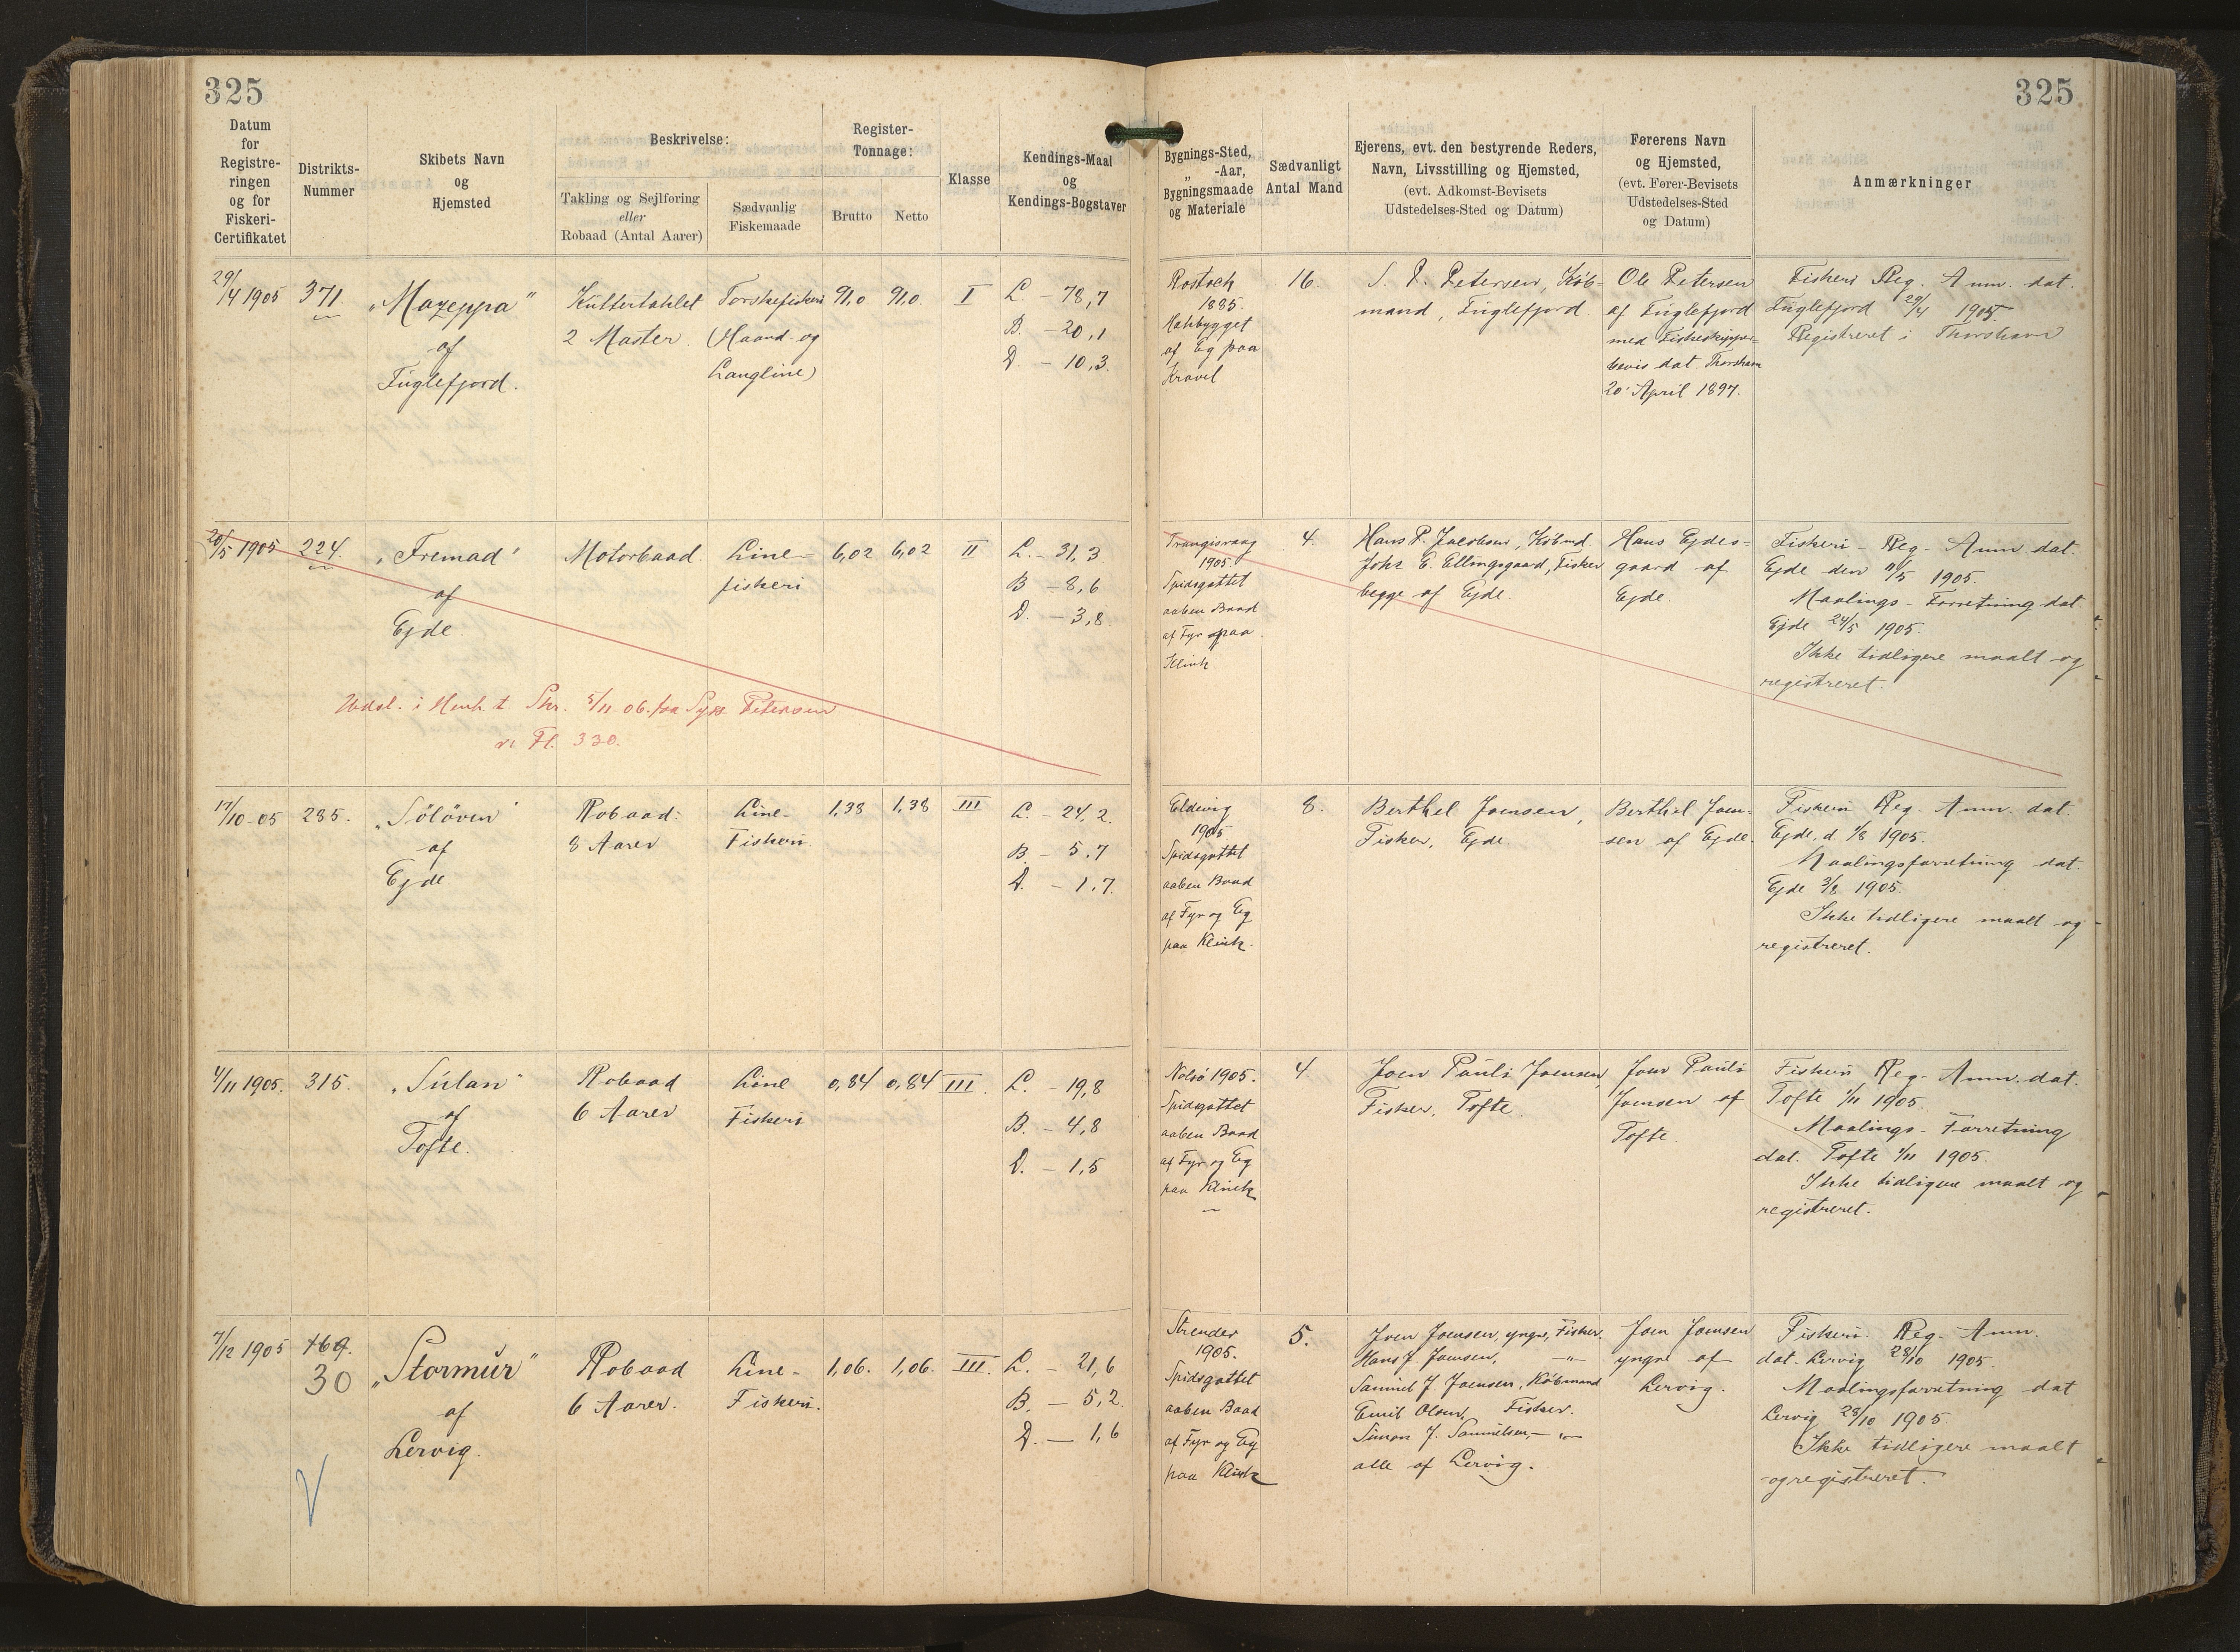 325
325
Datum
for
Registre-
ringen
og for
Fiskeri-
Certifikatet
Distrikts-
Nummer
Skibets Navn
og
Hjemsted
Beskrivelse:
Takling og Sejlføring
eller
Robaad (Antal Aarer)
Sædvanlig
Fiskemaade
Register-
Tonnage:
Brutto
Netto
Klasse
Kendings-Maal
og
Kendings-Bogstaver
Bygnings-Sted,
„ -Aar,
Bygningsmaade
og Materiale
Sædvanligt
Antal Mand
Ejerens, evt. den bestyrende Reders,
Navn, Livsstilling og Hjemsted,
(evt. Adkomst-Bevisets
Udstedelses-Sted og Datum)
Førerens Navn
og Hjemsted,
(evt. Fører-Bevisets
Udstedelses-Sted
og Datum)
Anmærkninger
29/4 1905
371.
„Mazeppa"
af
Fuglefjord.
Kuttertaklet
2 Master.
Torskefiskeri
(Haand- og
Langline)
91,0
91,0.
I
L. - 78,7
B. - 20,1
D. - 10,3.
Rostock
1885.
af Eg paa
Kravel
16.
S. P. Petersen, Køb-
mand, Fuglefjord
Ole Petersen
af Fuglefjord
med Fiskeskipper-
bevis dat. Thorshavn
20' April 1897.
Fiskeri Reg. Anm. dat.
Fuglefjord 29/4 1905.
Registreret i Thorshavn
20/5 1905
224.
„Fremad"
af
Ejde.
Motorbaad.
Line-
fiskeri
6,02
6,02
II
L. - 31,3
B - 8,6
D. - 3,8
Trangisvaag
1905.
Spidsgattet
aaben Baad
af Fyr paa
Klink
4.
Hans P. Jacobsen, Købmd.
Johs E. Ellingsgaard, Fisker
begge af Ejde.
Hans Ejdes-
gaard af
Ejde.
Fiskeri - Reg. - Anm. dat.
Ejde den /5 1905.
Maalings - Forretning dat.
Ejde 24/5 1905.
Ikke tidligere maalt og
registreret.
Udsl. i Henh. t. Skr. 5/11 06. fra Petersen
Fl. 330.
17/10-05
285.
„Söløven"
af
Ejde.
Robaad:
8 Aarer
Line-
Fiskeri.
1,38
1,38
III
L. - 24,2.
B. - 5,7
D. - 1,7.
Eldevig
1905
Spidsgattet
aaben Baad
af Fyr og Eg
paa Klink.
8.
Berthel Joensen,
Fisker, Ejde
Berthel Joen-
sen af Ejde.
Fiskeri Reg. Anm. dat.
Ejde, d. /8 1905.
Maalingsforretning dat.
Ejde 3/8 1905.
Ikke tidligere maalt og
registreret.
4/11 1905.
315.
„Súlan"
af
Tofte.
Robaad
6 Aarer
Line
Fiskeri
0,84
0,84
III.
L. - 19,8
B. - 4,8
D. - 1,5
Nolsö 1905.
Spidsgattet
aaben Baad
af Fyr og Eg
paa Klink
4.
Joen Pauli Joensen,
Fisker, Tofte.
Joen Pauli
Joensen af
Tofte.
Fiskeri Reg. Anm. dat.
Tofte 1/11 1905.
Maalings - Forretning
dat. Tofte 1/11 1905.
Ikke tidligere maalt og
registreret.
7/12 1905
169.
30
„Stormúr"
af
Lervig.
Robaad
6 Aarer.
Line-
Fiskeri.
1,06.
1,06.
III.
L. - 21,6
B. - 5,2.
D. - 1,6
Strender
1905.
Spidsgattet
aaben Baad
af Fyr og Eg
paa Klink
5.
Joen Joensen, yngre, Fisker.
Hans J. Joensen, - " -
Samuel J. Joensen, Købmand
Emil Olsen, Fisker.
Simon J. Samuelsen, - " -
alle af Lervig.
Joen Joensen
yngre af
Lervig.
Fiskeri. Reg. Anm.
dat. Lervig 28/10 1905.
Maalingsforretning dat
Lervig 28/10 1905.
Ikke tidligere maalt
og registreret.